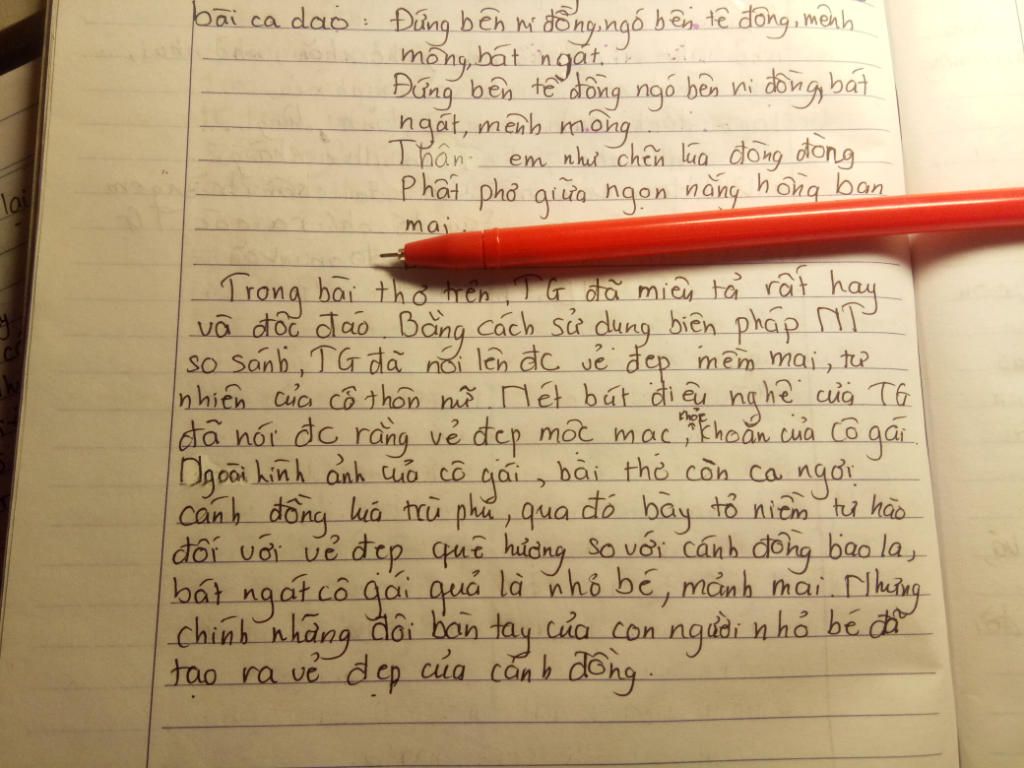 bài ca dao: Đứng bên ni đồng, ngó bên tê đồng, mênh
mông, bát ngát.
Đứng bên tê đồng ngó bên ni đồng, bát
ngát, mênh mông
Thân em như chẽn lúa đòng đòng
Phất phơ giữa ngọn nắng hồng ban
mai.
Trong bài thơ trên, TG đã miêu tả rất hay
và độc đáo. Bằng cách sử dụng biện pháp NT
so sánh, TG đã nói lên đc vẻ đẹp mềm mại, tự
nhiên của cô thôn nữ. Nét bút điệu nghệ của TG
đã nói đc rằng vẻ đẹp mộc mạc, khoắn của cô gái.
Ngoài hình ảnh của cô gái, bài thơ còn ca ngợi
cánh đồng lúa trù phú, qua đó bày tỏ niềm tự hào
đối với vẻ đẹp quê hương so với cánh đồng bao la,
bát ngát cô gái quả là nhỏ bé, mảnh mai. Nhưng
chính những đôi bàn tay của con người nhỏ bé đã
tạo ra vẻ đẹp của cánh đồng.